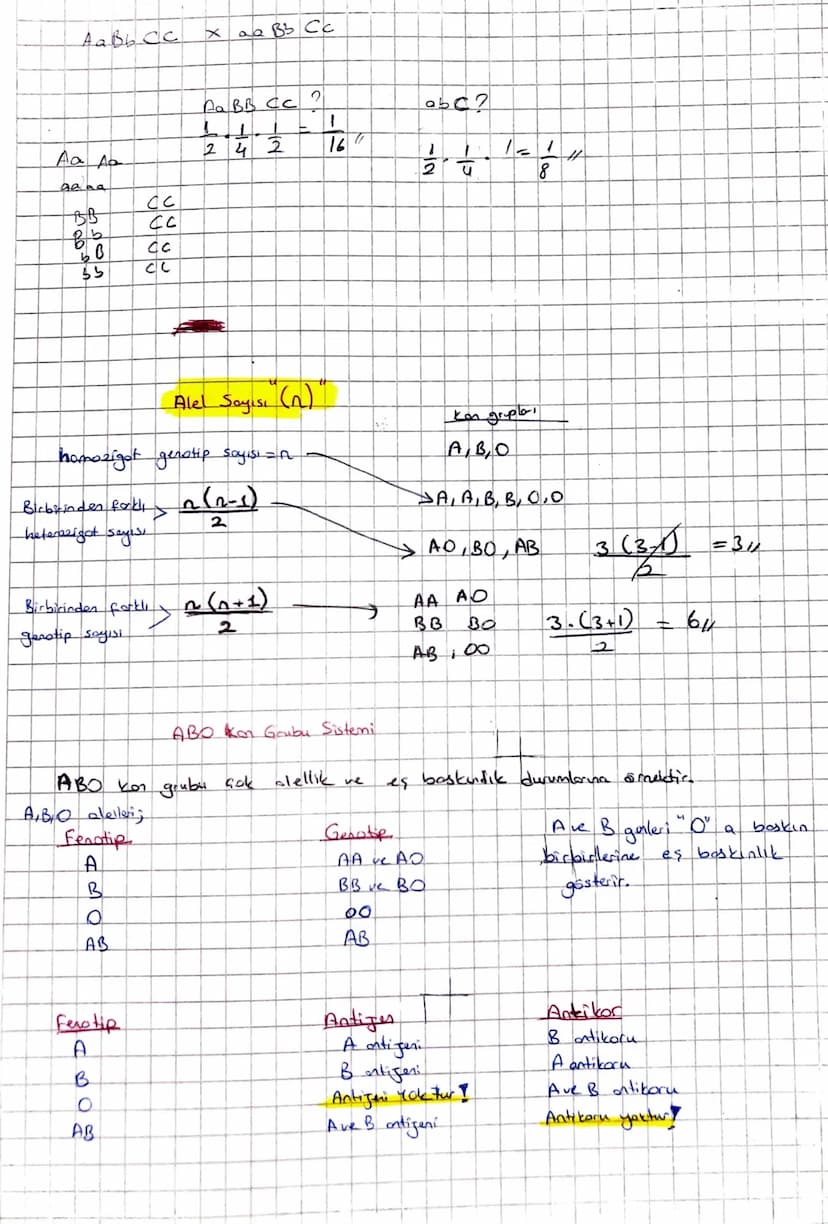 AaBbCC x aaBbCc
AaBBCC ? abC?
1/2 . 1/4 . 1/2 = 1/16 //
1/2 . 1/4 . 1 = 1/8 //
Aa Aa
aa aa
BB CC
Bb Cc
bB CC
bb Cc
Alel Sayısı "(n)"
Kan grupları
homozigot genotip sayısı = n
A, B, O
A, A, B, B, O, O
Birbirinden farklı heterozigot sayısı > n(n-1)/2
AO, BO, AB 3(3-1)/2 = 3 //
Birbirinden farklı genotip sayısı > n(n+1)/2
AA AO
BB BO
AB, OO
3.(3+1)/2 = 6 //
ABO Kan Grubu Sistemi
ABO kan grubu çok alellik ve eş baskınlık durumlarına örnektir.
A,B,O alelleri;
Fenotip Genotip
A AA ve AO
B BB ve BO
O OO
AB AB
A ve B genleri "O" a baskın
birbirlerine eş baskınlık
gösterir.
Fenotip Antijen Antikor
A A antijeni B antikoru
B B antijeni A antikoru
O Antijeni Yoktur! A ve B antikoru
AB A ve B antijeni Antikoru yoktur!